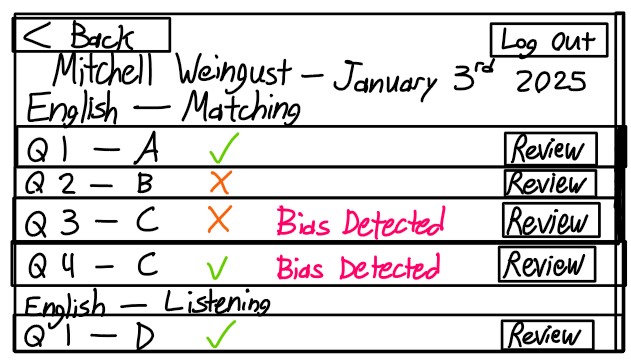 < Back Log Out
Mitchell Weingust - January 3rd 2025
English - Matching
Q1 - A ✓ Review
Q2 - B X Review
Q3 - C X Bias Detected Review
Q4 - C ✓ Bias Detected Review
English - Listening
Q1 - D ✓ Review